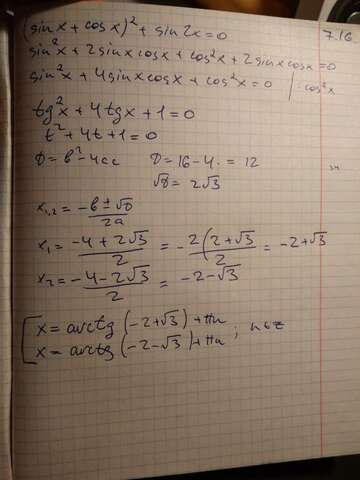 (sin x + cos x)² + sin 2x = 0
7.16
sin²x + 2sin x cos x + cos²x + 2sin x cos x = 0
sin²x + 4sin x cos x + cos²x = 0 | : cos²x
tg²x + 4tg x + 1 = 0
t² + 4t + 1 = 0
D = b² - 4ac D = 16 - 4· = 12
√D = 2√3
x₁,₂ = (-b ± √D)/2a
x₁ = (-4 + 2√3)/2 = -2(2 + √3)/2 = -2 + √3
x₂ = (-4 - 2√3)/2 = -2 - √3
[ x = arctg (-2 + √3) + πn
x = arctg (-2 - √3) + πn ; n ∈ z